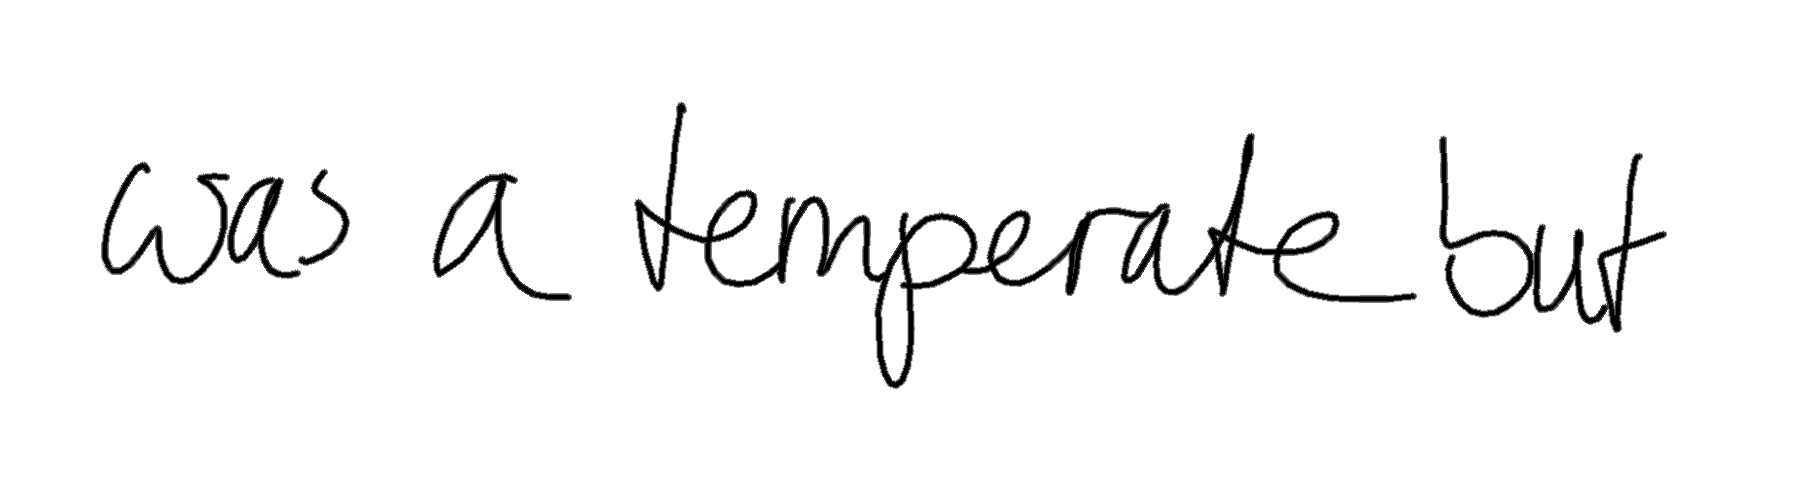 was a temperate but